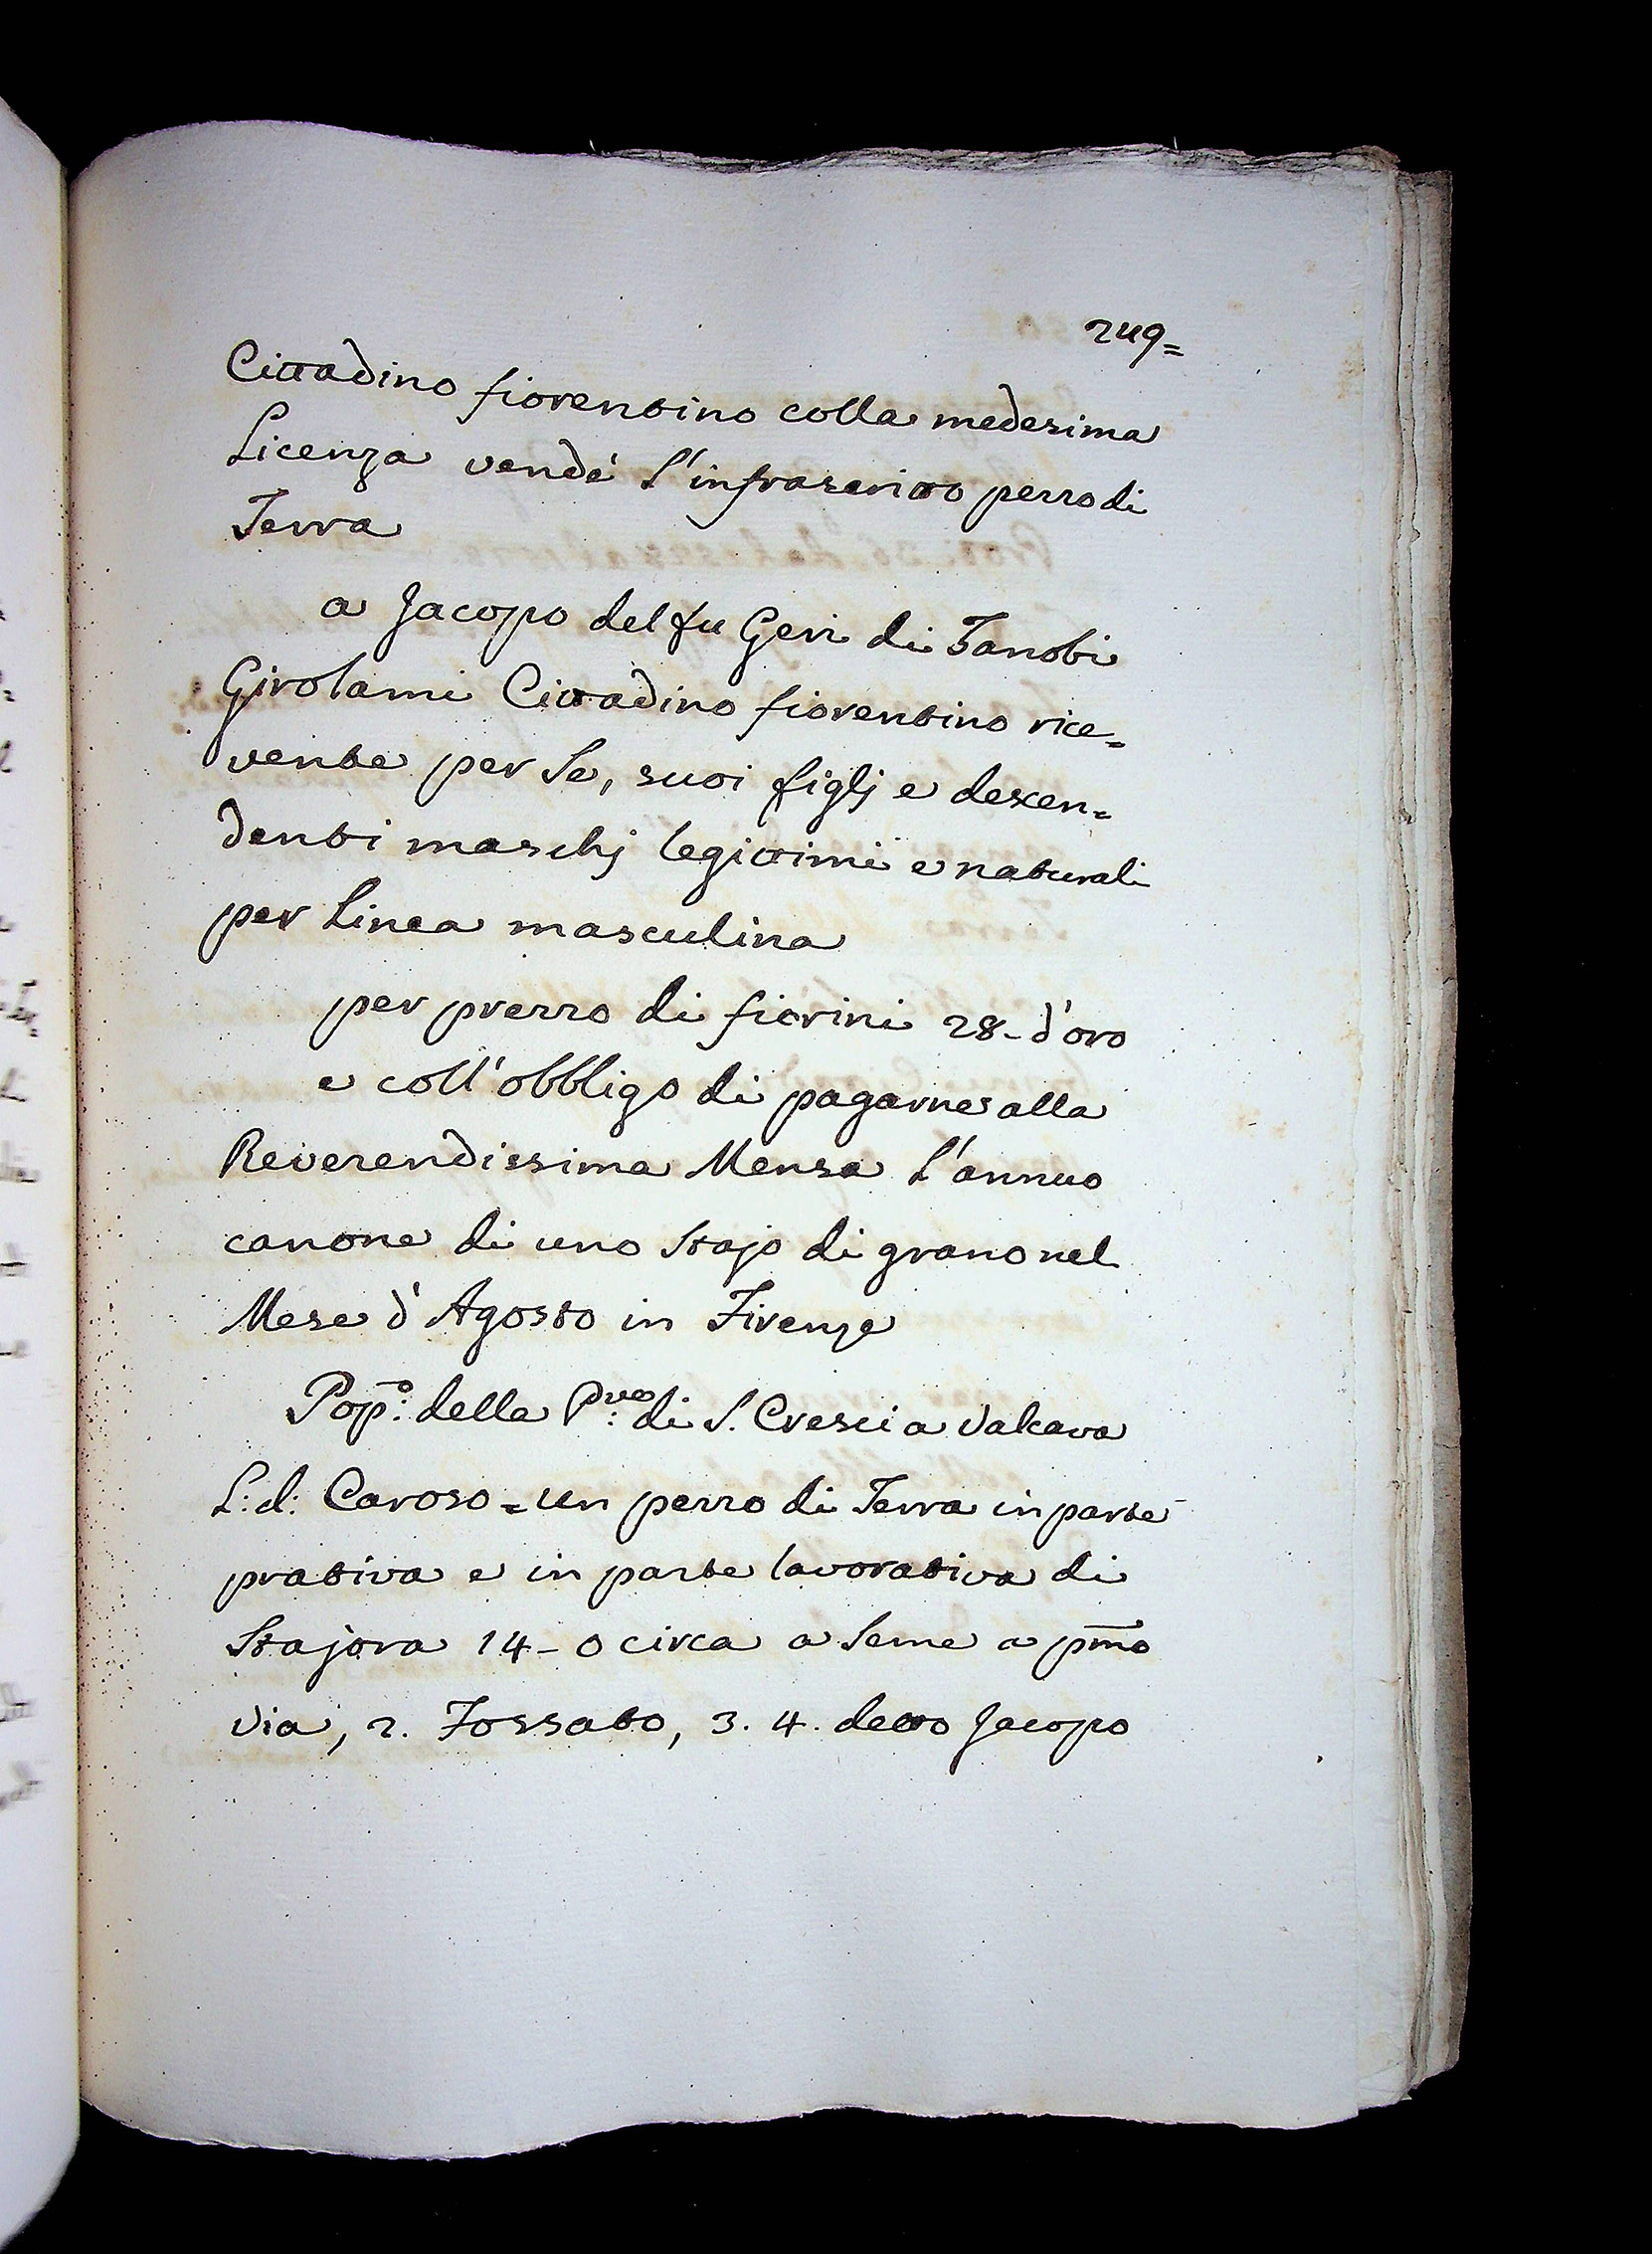 249=
Cittadino fiorentino colla medesima
Licenza vendè l'infrascritto pezzo di
Terra
a Jacopo del fu Geri di Zanobi
Girolami Cittadino fiorentino rice=
vente per Se, suoi figlj e descen=
denti maschj legittimi e naturali
per Linea masculina
per prezzo di fiorini 28- d'oro
e coll'obbligo di pagarne alla
Reverendissima Mensa l'annuo
canone di uno Stajo di grano nel
Mese d'Agosto in Firenze
Pop:º della P:ve di S. Cresci a Valcava
L: d: Caroso = un pezzo di Terra in parte
prativa e in parte lavorativa di
Stajora 14-0 circa a Seme a pm̄o
via, 2. Fossato, 3. 4. detto Jacopo